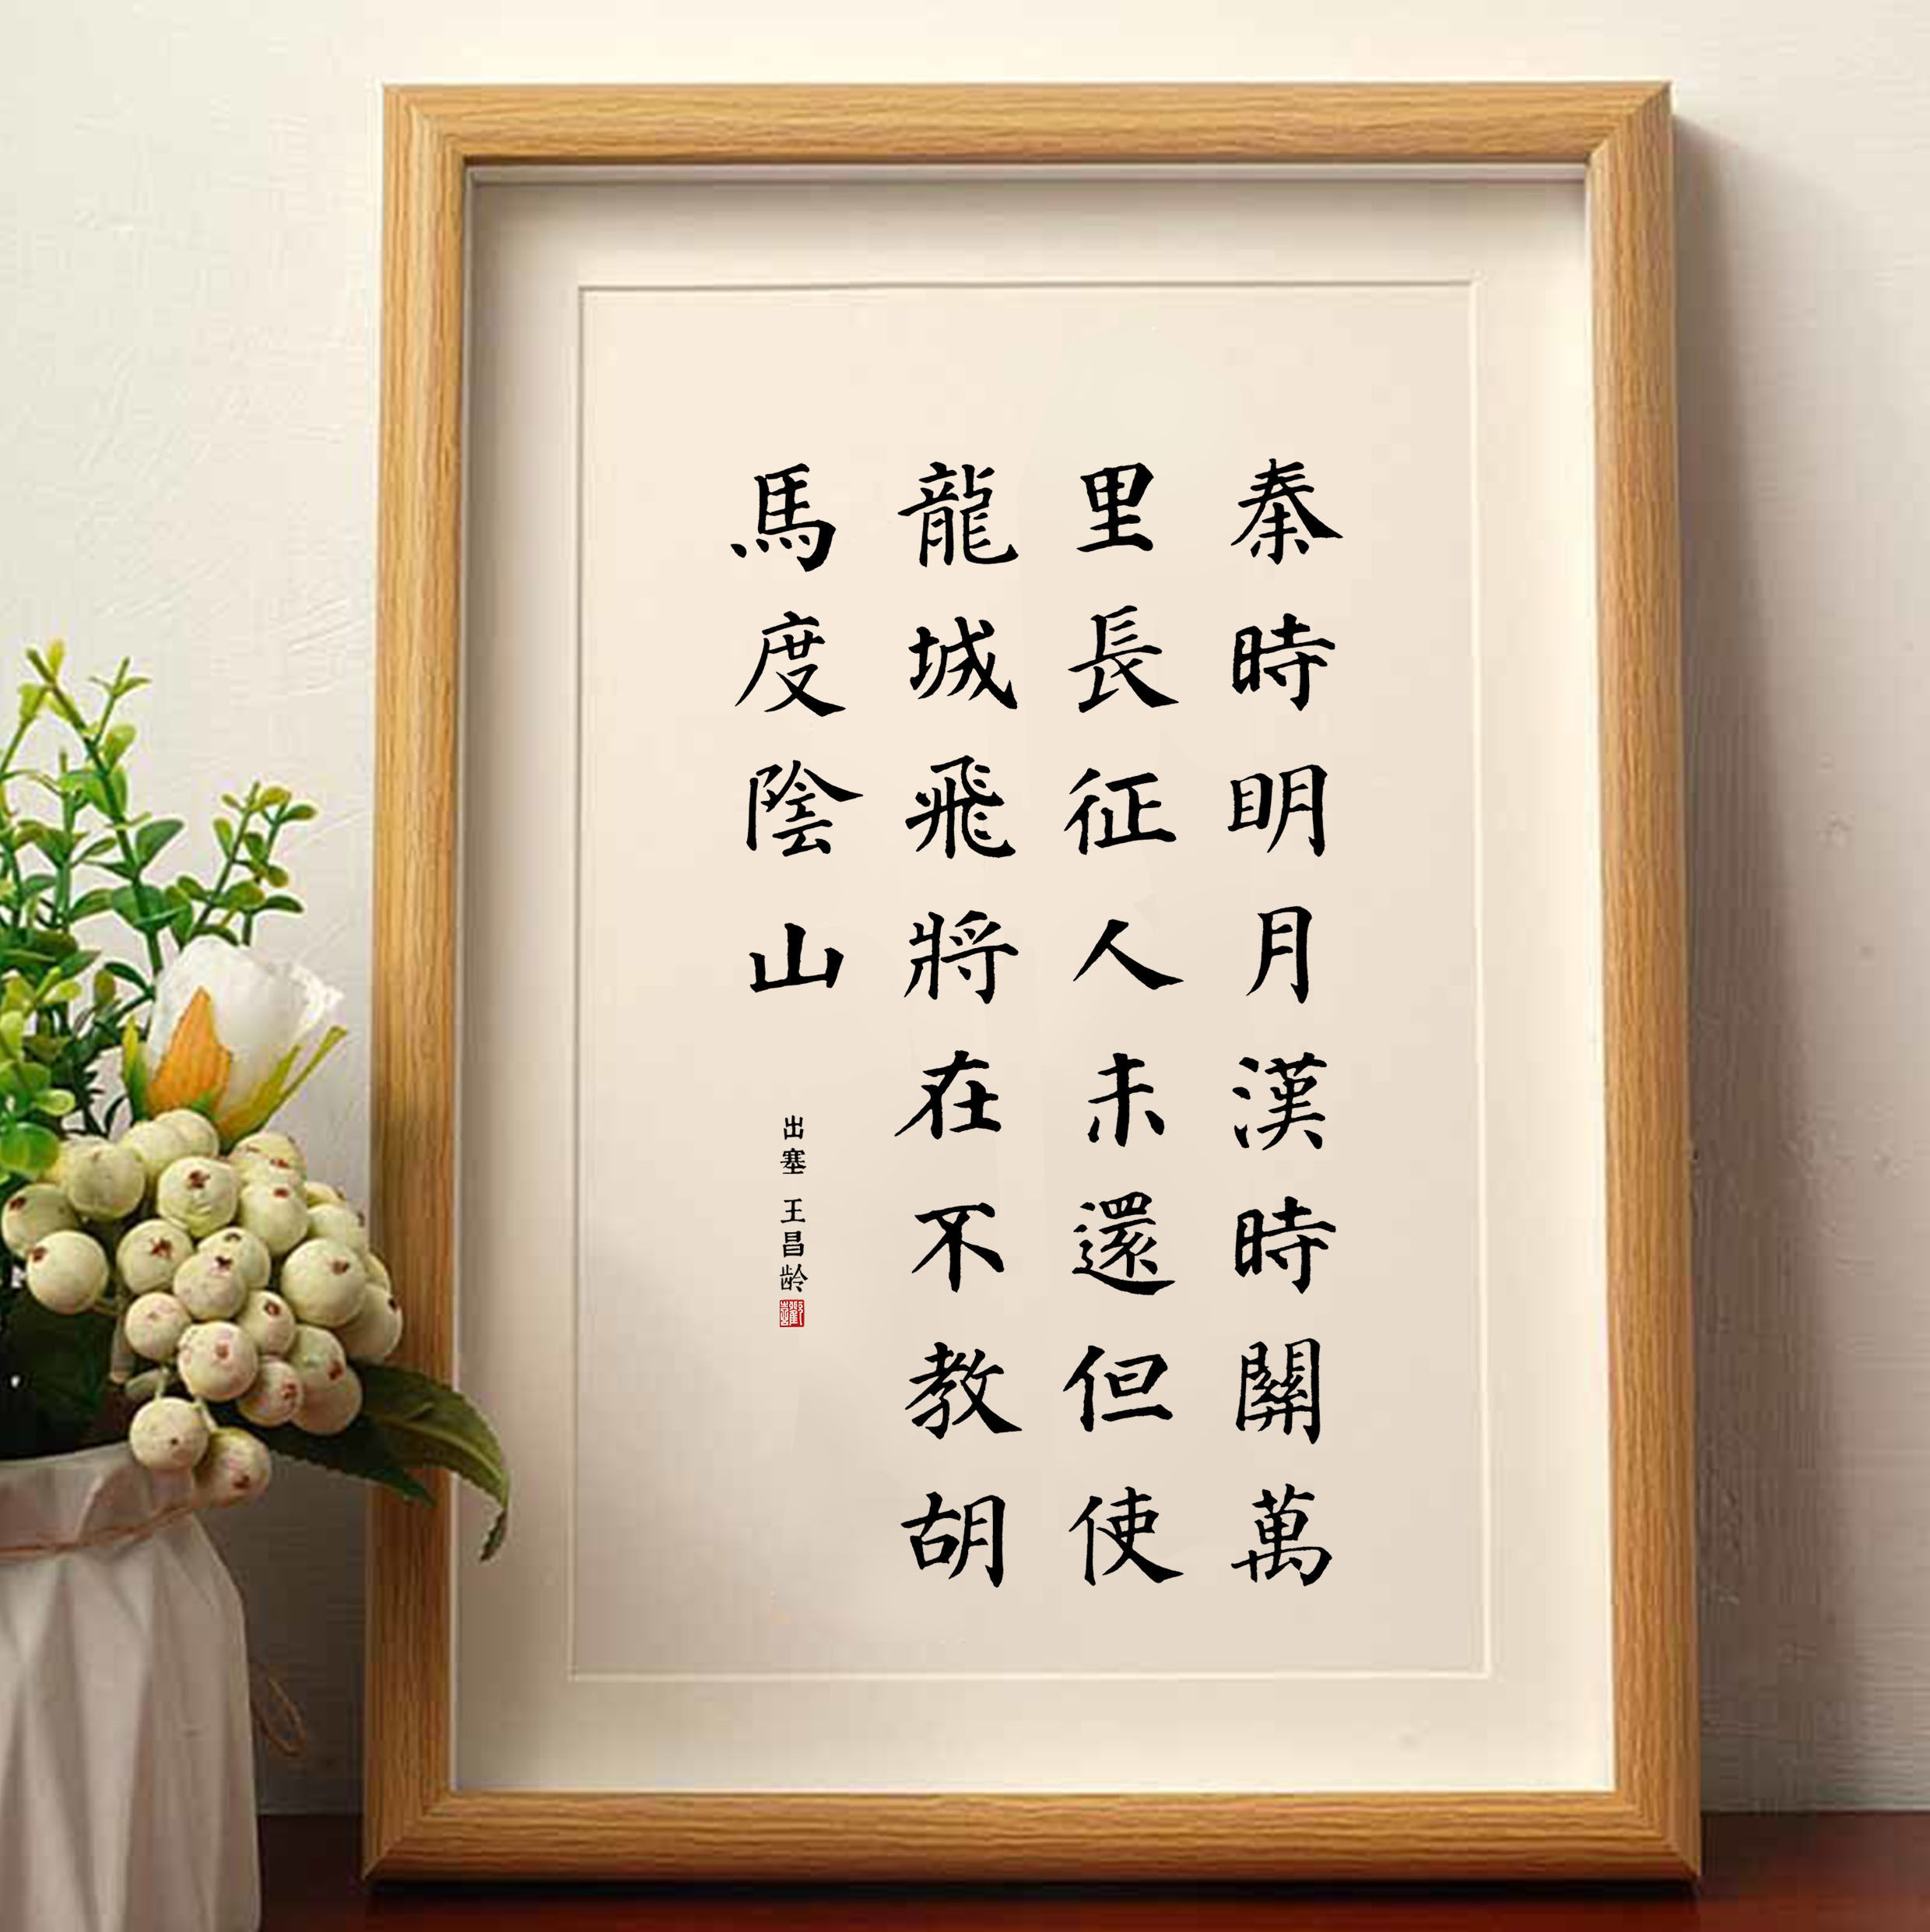 秦時明月漢時關萬
里長征人未還但使
龍城飛將在不教胡
馬度陰山
出塞 王昌龄